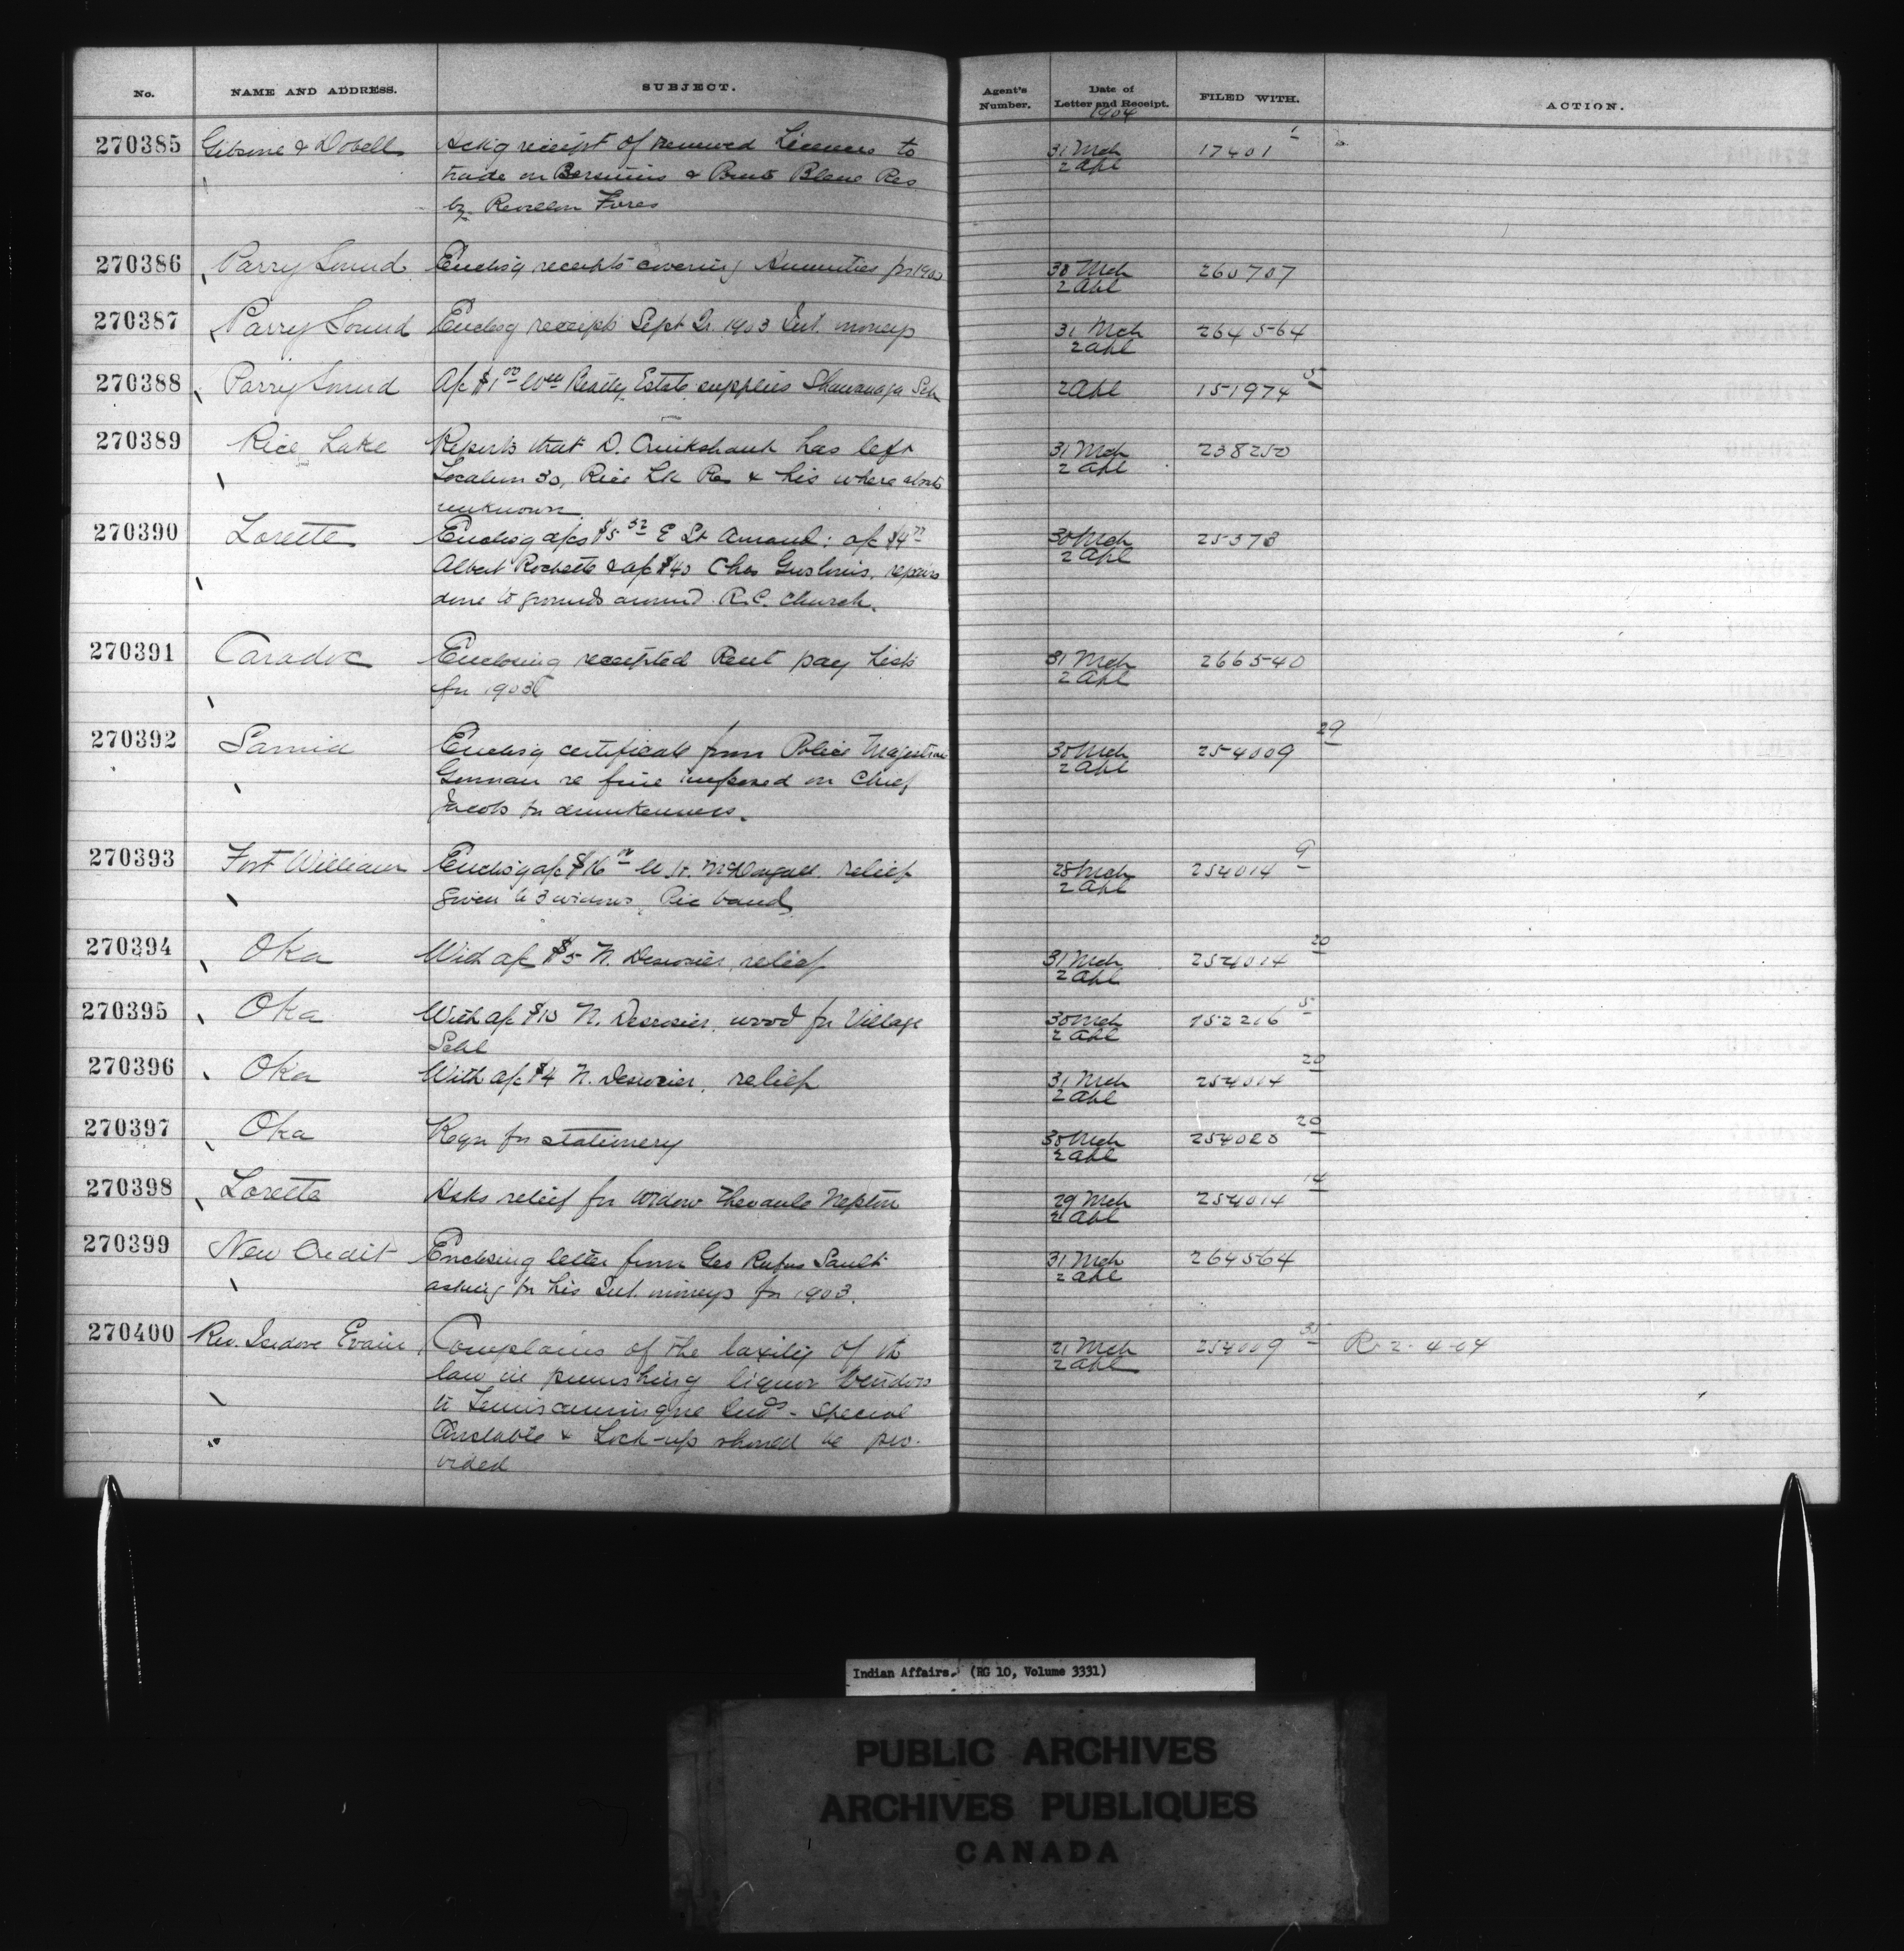 No. NAME AND ADDRESS. SUBJECT. Agent's Number. Date of Letter and Receipt. FILED WITH. ACTION.
1904
270385 Gibsone & Dobell Ackg receipt of renewed Licences to 31 Mch 17401 1
trade on Bersimis & Blanc Res 2 Apl
by Revillon Freres
270386 Parry Sound Enclosg receipts covering Annuities for 1903 30 Mch 260707
2 Apl
270387 Parry Sound Enclosg receipts Sept Qr. 1903 Int. moneys 31 Mch 264564
2 Apl
270388 Parry Sound A/c $1.00 Wm Beatty Estate supplies Shawanaga Sch 2 Apl 151974 5
270389 Rice Lake Reports that D. Cruikshank has left 31 Mch 238250
Location 30, Rice Lk Res & his where abouts 2 Apl
unknown
270390 Lorette Enclosg a/cs $5 32 E St Amand: a/c $4 77 30 Mch 25373
Albert Rochette & a/c $40 Chas Gros Louis, repairs 2 Apl
done to grounds around R.C. Church.
270391 Caradoc Enclosing receipted Rent pay Lists 31 Mch 266540
for 1903 2 Apl
270392 Sarnia Enclosg certificate from Police Magistrate 30 Mch 254009 29
Gorman re fine imposed on Chief 2 Apl
Jacobs for drunkenness.
270393 Fort William Enclosg a/c $16 McDougall relief 28 Mch 254014 9
given to 3 widows, Pic band 2 Apl
270394 Oka With a/c $5 N. Desrosier, relief 31 Mch 254014 20
2 Apl
270395 Oka With a/c $10 N. Desrosier, wood for Village 30 Mch 152216 5
Schl 2 Apl
270396 Oka With a/c $4 N. Desrosier, relief 31 Mch 254014 20
2 Apl
270397 Oka Reqn for stationery 30 Mch 254020 20
2 Apl
270398 Lorette Asks relief for Widow Neptun 29 Mch 254014 14
2 Apl
270399 New Credit Enclosing letter from Geo Rufus Sault 31 Mch 264564
asking for his Int. moneys for 1903. 2 Apl
270400 Rev. Isidore Evain Complains of the laxity of the 21 Mch 254009 35 R. 2-4-04
law in punishing liquor Vendors 2 Apl
to Temiscamingue Inds - Special
Constable & Lock-up should be pro-
vided
Indian Affairs. (RG 10, Volume 3331)
PUBLIC ARCHIVES
ARCHIVES PUBLIQUES
CANADA